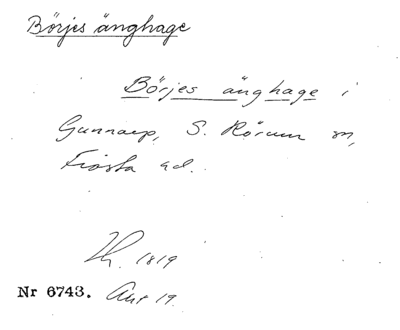 Börjes änghage
Börjes änghage i
Gunnarp, S. Rörum sn,
Frosta hd.
1819
Nr 6743.  19.